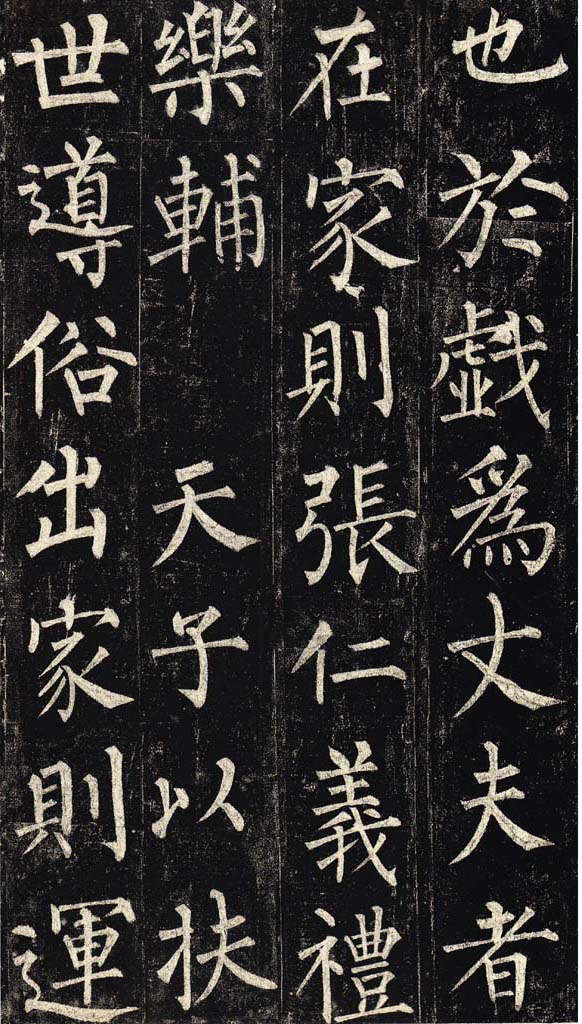 也於戱爲丈夫者
在家則張仁義禮
樂輔 天子以扶
世導俗出家則運